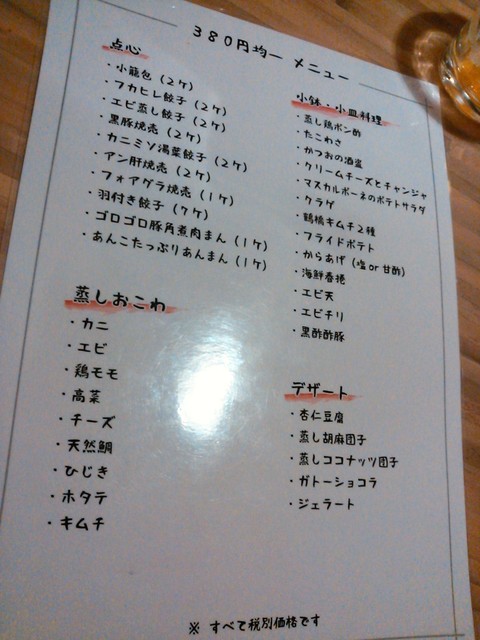 380円均一 メニュー
点心
・小籠包(2ケ)
・フカヒレ餃子(2ケ)
・エビ蒸し餃子(2ケ)
・黒豚焼売(2ケ)
・カニミソ湯葉餃子(2ケ)
・アン肝焼売(2ケ)
・フォアグラ焼売(1ケ)
・羽付き餃子(7ケ)
・ゴロゴロ豚角煮肉まん(1ケ)
・あんこたっぷりあんまん(1ケ)
蒸しおこわ
・カニ
・エビ
・鶏モモ
・高菜
・チーズ
・天然鯛
・ひじき
・ホタテ
・キムチ
小鉢・小皿料理
・蒸し鶏ポン酢
・たこわさ
・かつおの酒盗
・クリームチーズとチャンジャ
・マスカルポーネのポテトサラダ
・クラゲ
・鶴橋キムチ2種
・フライドポテト
・からあげ(塩or甘酢)
・海鮮春捲
・エビ天
・エビチリ
・黒酢酢豚
デザート
・杏仁豆腐
・蒸し胡麻団子
・蒸しココナッツ団子
・ガトーショコラ
・ジェラート
※ すべて税別価格です